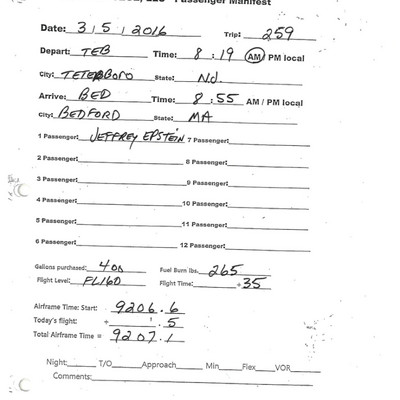 Passenger Manifest
Date: 3 / 5 / 2016 Trip: 259
Depart: TEB Time: 8 : 19 AM / PM local
City: TETERBORO State: NJ.
Arrive: BED Time: 8 : 55 AM / PM local
City: BEDFORD State: MA
1 Passenger: JEFFREY EPSTEIN 7 Passenger:
2 Passenger: 8 Passenger:
3 Passenger: 9 Passenger:
4 Passenger: 10 Passenger:
5 Passenger: 11 Passenger:
6 Passenger: 12 Passenger:
Gallons purchased: 400 Fuel Burn lbs. 265
Flight Level: FL160 Flight Time: +35
Airframe Time: Start: 9206.6
Today's flight: + .5
Total Airframe Time = 9207.1
Night: T/O Approach Min Flex VOR
Comments: